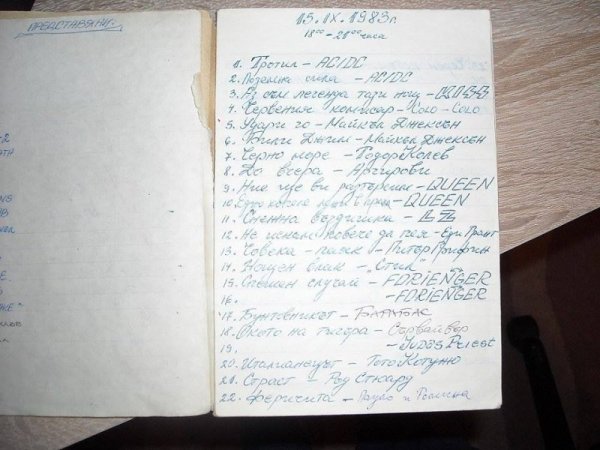 ПРЕДСТАВЯНИ:
15. IX. 1983г.
18⁰⁰ - 20⁰⁰ часа
1. Тротил - AC/DC
2. Подземна сила - AC/DC
3. Аз съм легенда тази нощ -
4. Червения комисар - Соло - Соло
5. Удари го - Майкъл Джексън
6. Били Джийн - Майкъл Джексън
7. Черно море - Тодор Колев
8. До вчера - Аргирови
9. Ние ще ви разтърсим - QUEEN
10. Едно копеле - QUEEN
11. Снежна въздишки - LZ
12. Не искам повече да пея - Еди Грант
13. Човека - паяк - Питър Грифин
14. Нощен влак - "Стил"
15. Спешен случай - FORIENGER
16. - FORIENGER
17. Бунтовникът - БАРАБАС
18. Окото на тигъра - Сървайвър
19. - Judas Priest
20. Италианецът - Тото Кутуньо
21. Страст - Род Стюард
22. Феличита - Пауло и Ромина
-2
ATH
NG
НВ
Е
ЖЕ"